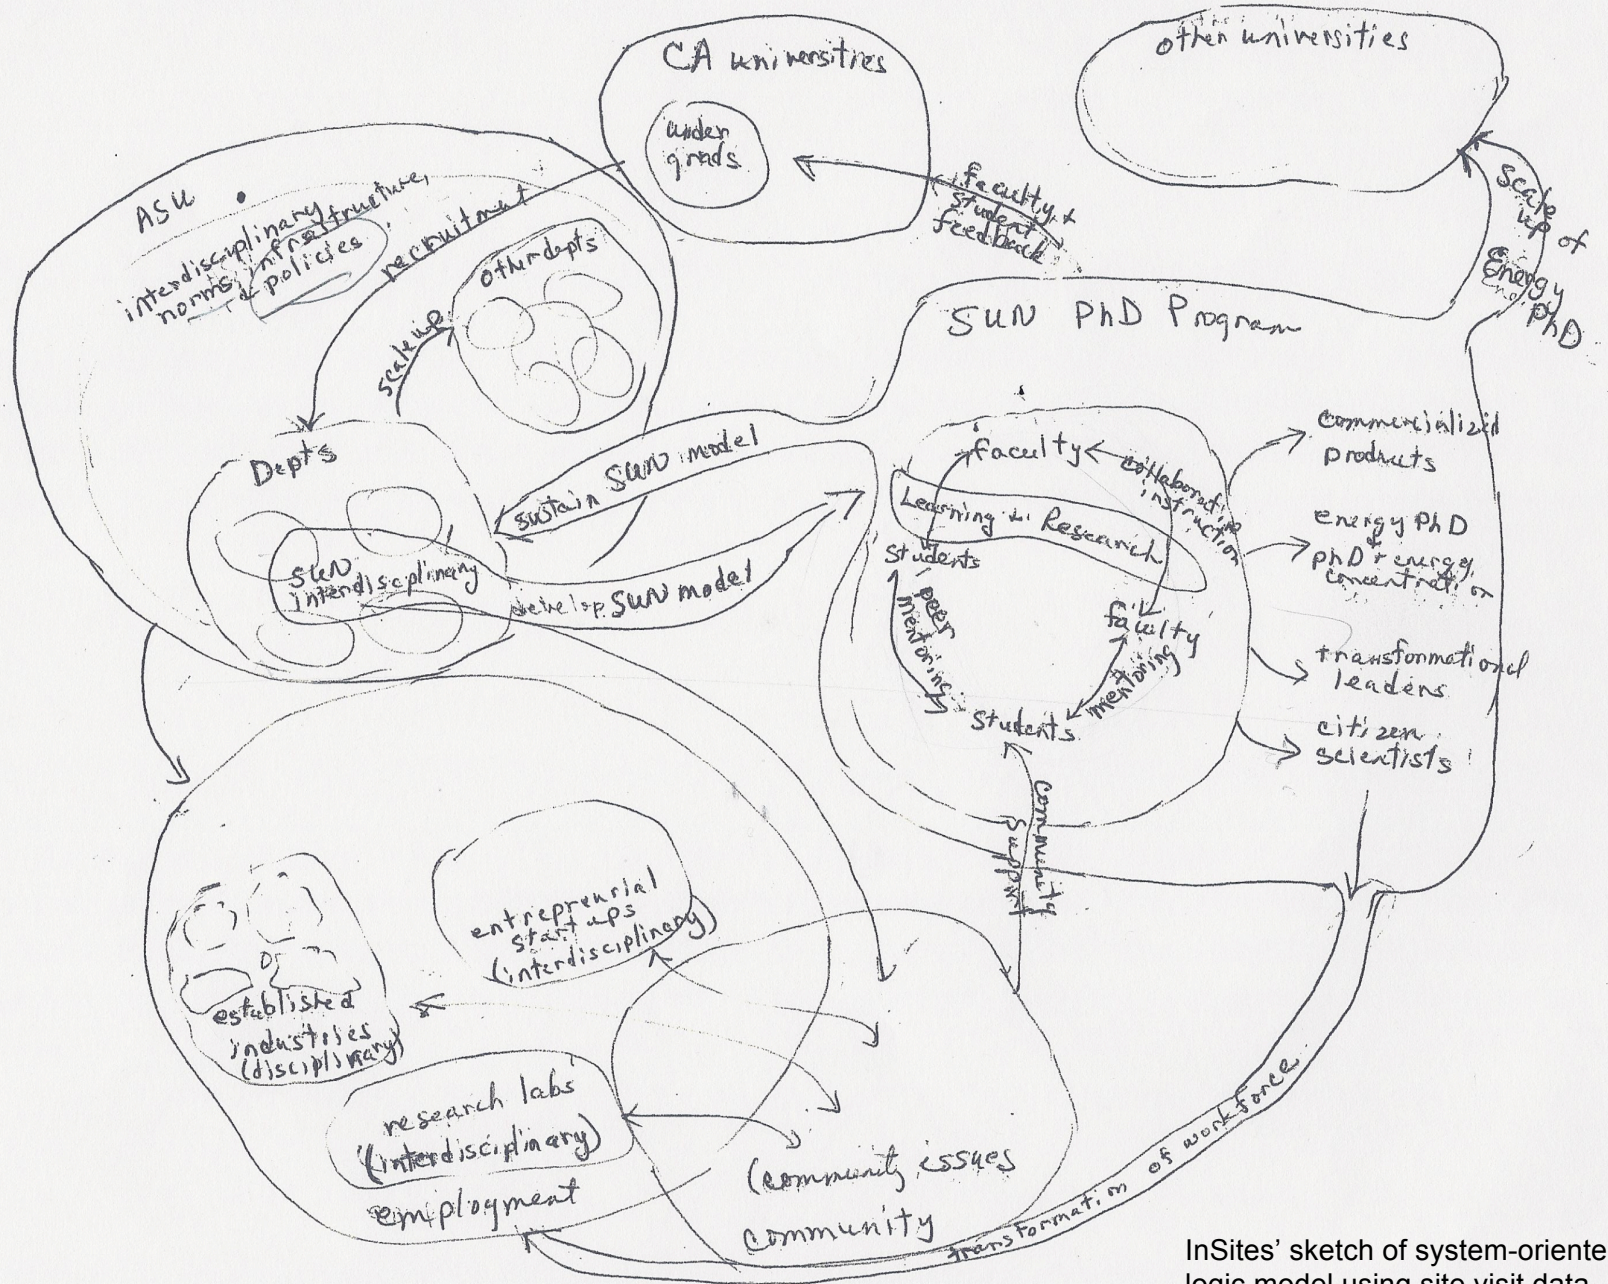 CA universities
under
grads
other universities
faculty +
student
feedback
scale
up of
Energy
PhD
ASU
interdisciplinary
norms, infrastructure,
+ policies
recruitment
other depts
scale up
Depts
SUN
interdisciplinary
sustain SUN model
develop SUN model
SUN PhD Program
faculty
collaborative
instruction
Learning & Research
Students
peer
mentoring
faculty
mentoring
Students
commercialized
products
energy PhD
PhD + energy
concentration
transformational
leaders
citizen
scientists
community
support
entreprenrial
startups
(interdisciplinary)
established
industries
(disciplinary)
research labs
(interdisciplinary)
employment
community issues
community
transformation of workforce
InSites’ sketch of system-oriente
logic model using site visit data